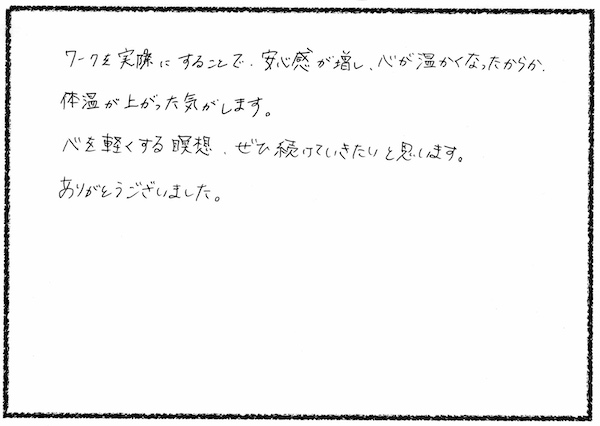 ワークを実際にすることで、安心感が増し、心が温かくなったからか、
体温が上がった気がします。
心を軽くする瞑想、ぜひ続けていきたいと思います。
ありがとうございました。